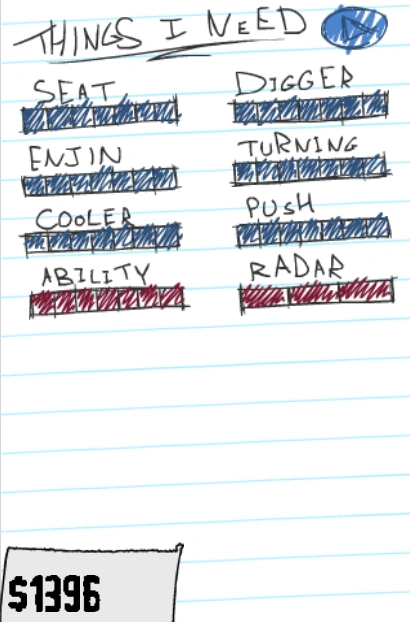 THINGS I NEED
SEAT DIGGER
ENJIN TURNING
COOLER PUSH
ABILITY RADAR
$1396